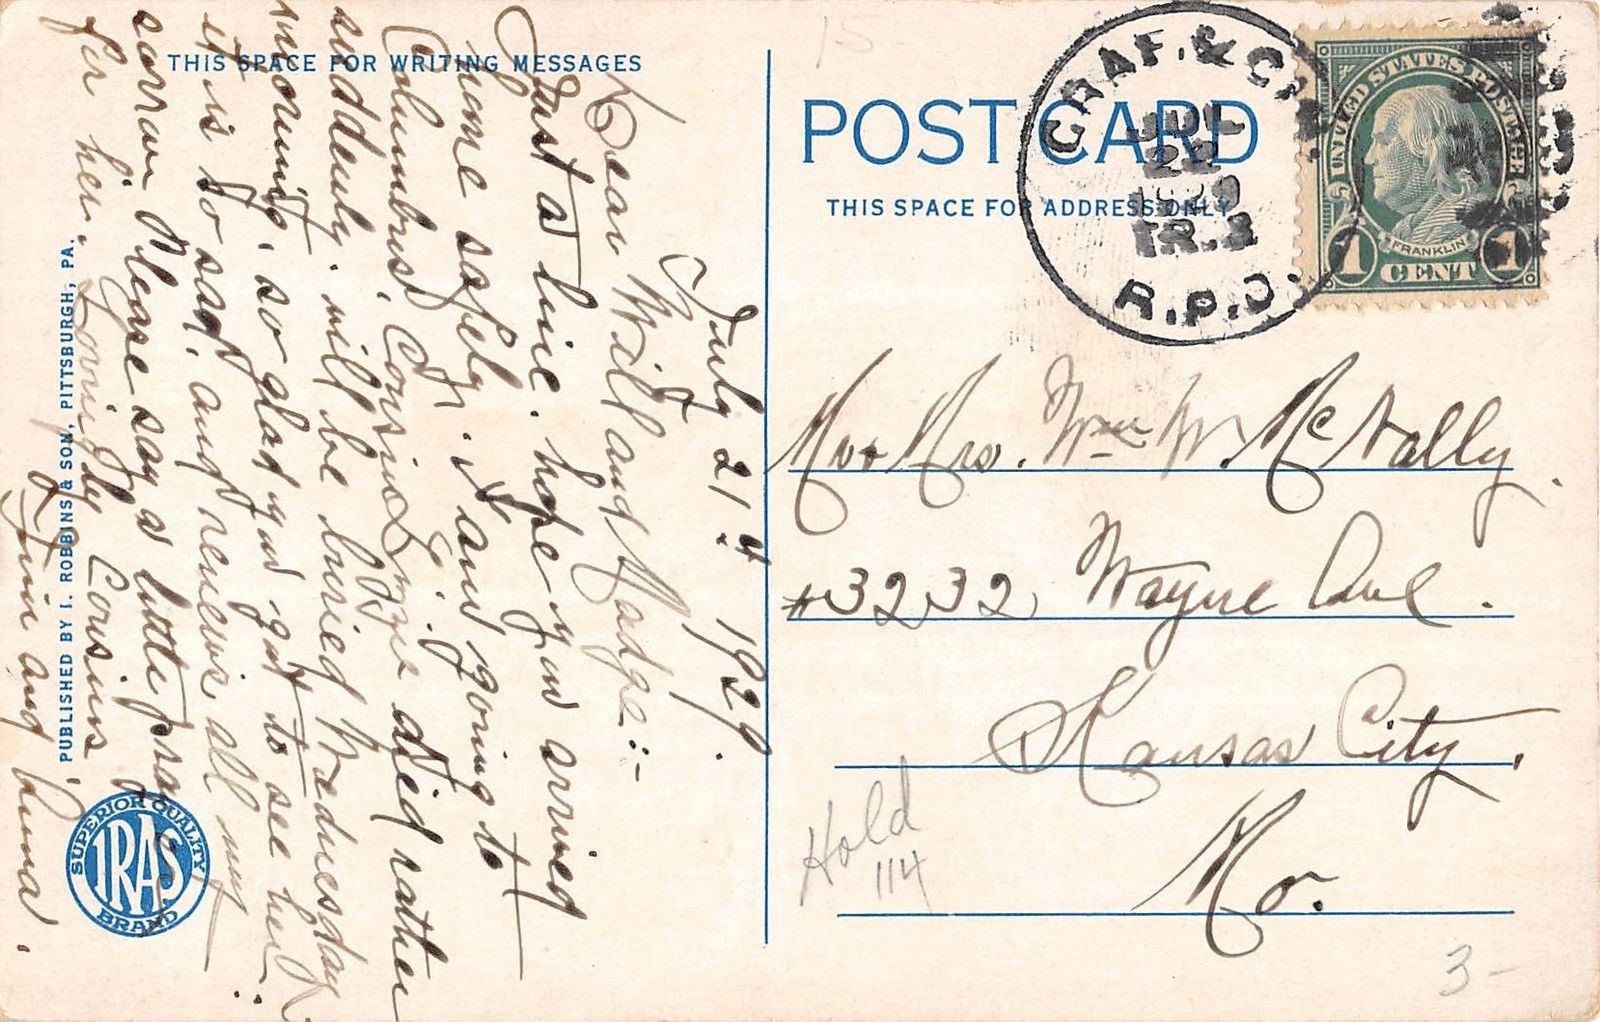 THIS SPACE FOR WRITING MESSAGES
July 21st 1929.
Dear Will and Madge:-
Just a line. hope you arrived
home safely. I am going to
Columbus. Cousin Lizzie died rather
suddenly. will be buried Wednesday
morning. so glad you got to see her.
it is so sad, and renews all my
sorrow Please say a little prayer
for her. Lovingly Cousins
and Anna.
PUBLISHED BY I. ROBBINS & SON, PITTSBURGH, PA.
SUPERIOR QUALITY
IRAS
BRAND
15
POST CARD
THIS SPACE FOR ADDRESS ONLY
GRAF. & CIN.
JUL
22
1929
TR.
R.P.O.
UNITED STATES POSTAGE
FRANKLIN
1 CENT 1
Mr & Mrs. Wm M. McNally.
#3232 Wayne Ave.
Kansas City,
Mo.
Hold
114
3-